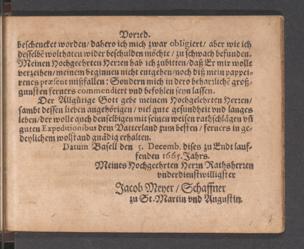 Vorred.
beschencket worden / dahero ich mich zwar obligiert / aber wie ich
desselbe wolthaten wider beschulden möchte / zu schwach befunden.
Meinen Hochgeehrten Herren hab ich zubitten / daß Er mir wolle
verzeihen / meinem beginnen nicht entgehen / noch diß mein pappei-
renes præsent mißfallen: Sondern mich in dero beharzliche groß-
gunsten ferners commendiert vnd befohlen seyn lassen.
Der Allgütige Gott gebe meinem Hochgelehrten Herren /
sambt dessen lieben angehörigen / viel gute gesundheit vnd langes
leben / der wolle auch denselbigen mit seinen weisen rathschlägen vñ
guten Expeditionibus dem Vatterland zum besten / ferners in ge-
deylichem wolstand gnädig erhalten.
Datum Basell den 5. Decemb. dises zu Endt lauf-
fenden 1665. Jahrs.
Meines Hochgeehrten Herrn Rathsherren
vnderdienstwilligster
Jacob Meyer / Schaffner
zu St. Martin vnd Augustin.